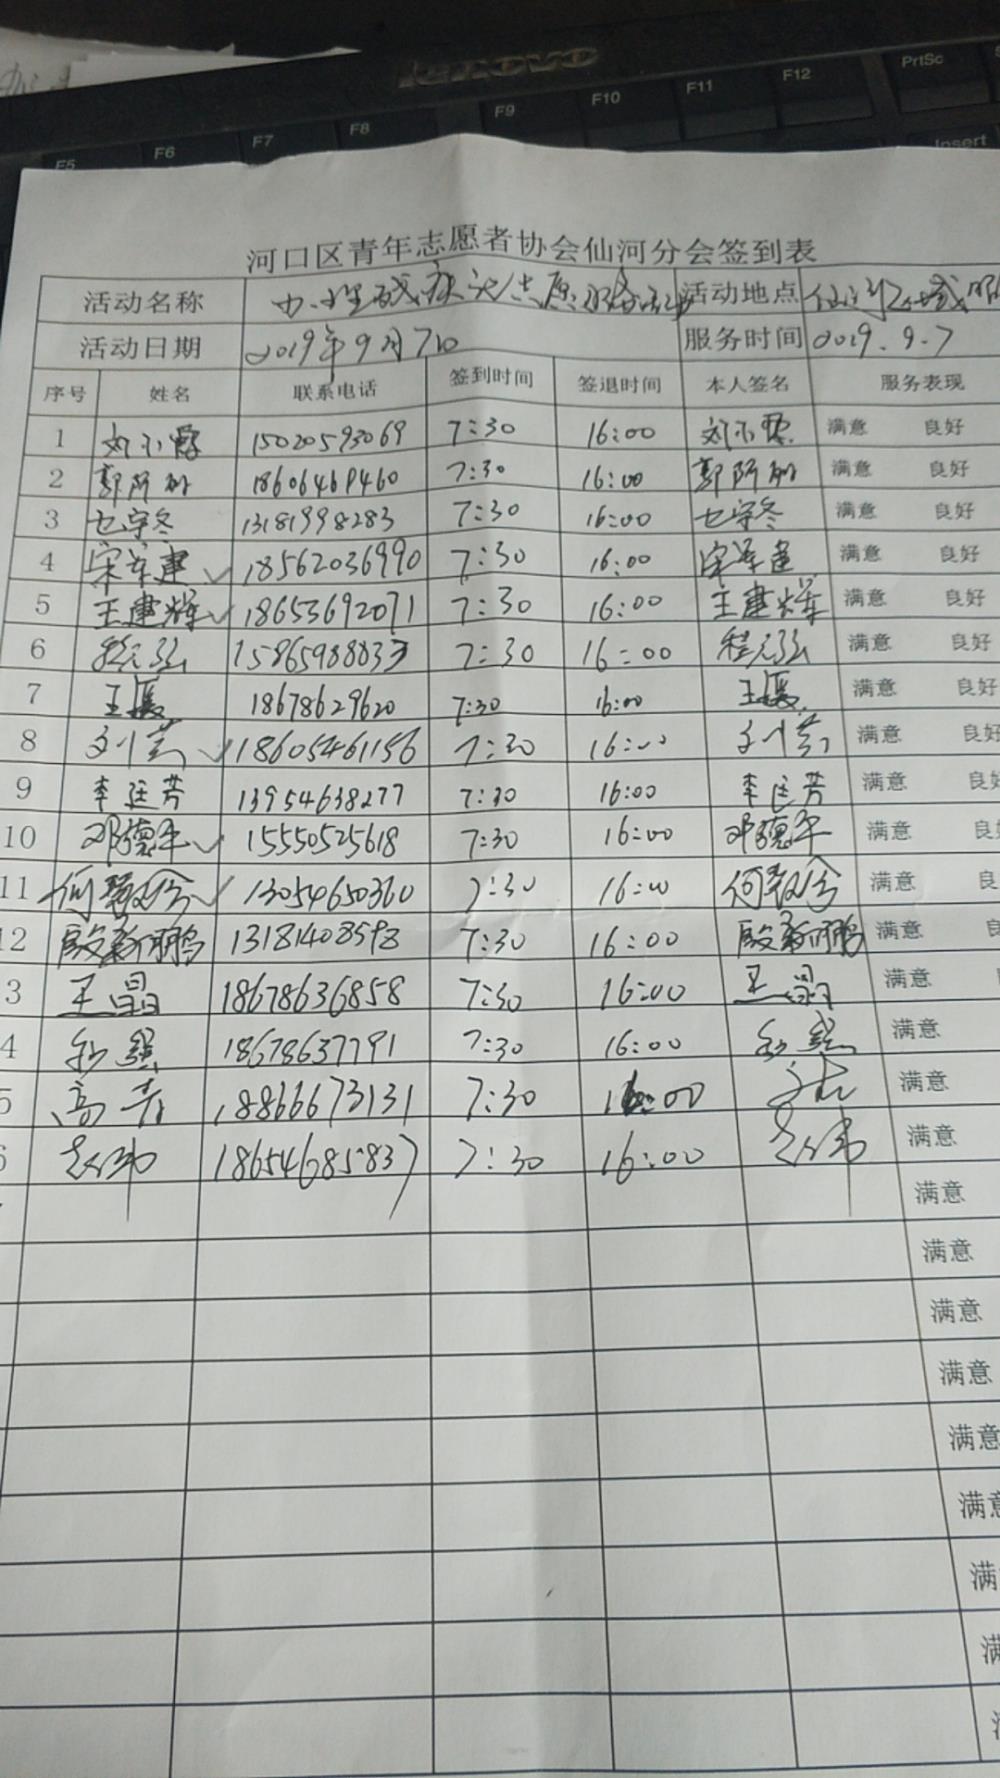 lenovo
F5 F6 F7 F8 F9 F10 F11 F12 PrtSc
Insert
河口区青年志愿者协会仙河分会签到表
活动名称 活动地点
活动日期 2019年9月7日 服务时间 2019.9.7
序号 姓名 联系电话 签到时间 签退时间 本人签名 服务表现
1 15020593069 7:30 16:00 满意 良好
2 郭阿丽 18606469460 7:30 16:00 郭阿丽 满意 良好
3 13181998283 7:30 16:00 满意 良好
4 宋军建 18562036990 7:30 16:00 宋军建 满意 良好
5 王建辉 18653692071 7:30 16:00 王建辉 满意 良好
6 15865988833 7:30 16:00 程元弘 满意 良好
7 王媛 18678629620 7:30 16:00 王媛 满意 良好
8 刘芳 18605461156 7:30 16:00 刘芳 满意 良好
9 李廷芳 13954638277 7:30 16:00 李廷芳 满意 良好
10 邓德平 15550525618 7:30 16:00 邓德平 满意 良
11 13054650360 7:30 16:00 满意 良
12 殷新鹏 13181408598 7:30 16:00 殷新鹏 满意 良
3 王晶 18678636858 7:30 16:00 王晶 满意
4 18678637791 7:30 16:00 满意
5 高青 18866673131 7:30 16:00 满意
6 赵伟 18654685837 7:30 16:00 赵伟 满意
满意
满意
满意
满意
满意
满意
满
满